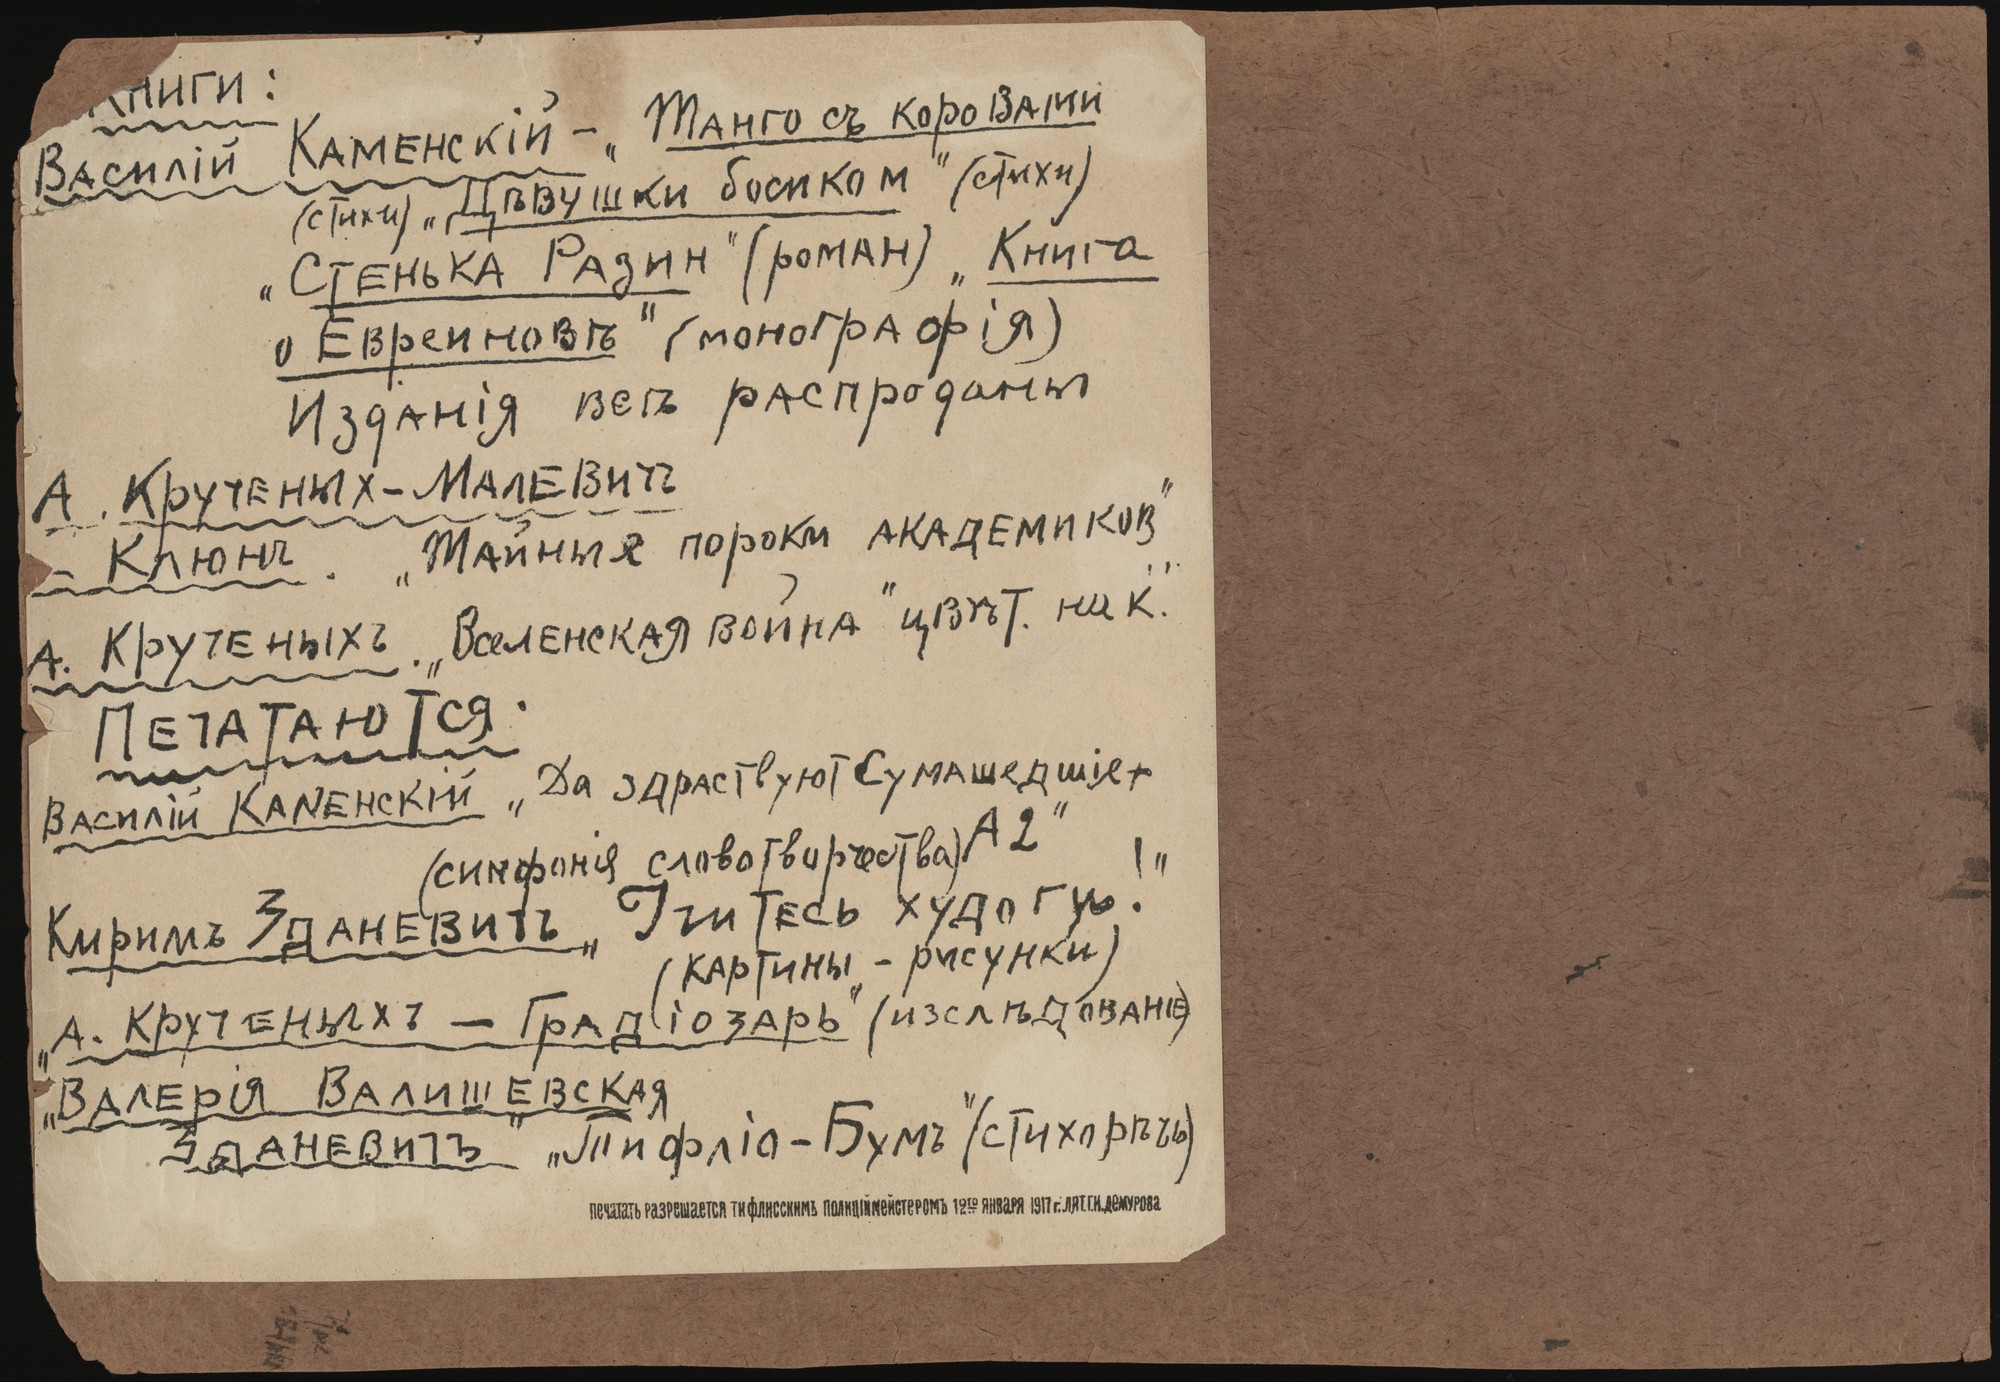 Книги:
Василій Каменскій – „Танго съ коровами
(стихи) „Дѣвушки босиком" (стихи)
„Стенька Разин" (роман) „Книга
о Евреиновѣ" (монографія)
Изданія всѣ распроданы
А. Крученых – Малевичъ
– Клюнъ. „Тайные пороки академиков"
А. Крученыхъ. „Вселенская война" цвѣт. нак.
Печатаются.
Василій Каменскій „Да здраствуют Сумашедшіе +
(симфонія словотворчества) А2"
Киримъ Зданевичъ „Учитесь худогую!"
(картины – рисунки)
„А. Крученыхъ – Градіозарь" (изслѣдованіе)
„Валерія Валишевская
Зданевичъ" „Тифліс – Бумъ" (стихорѣчь)
печатать разрешается тифлисскимъ полиціймейстеромъ 12го января 1917 г. лит. Г.И. Демурова